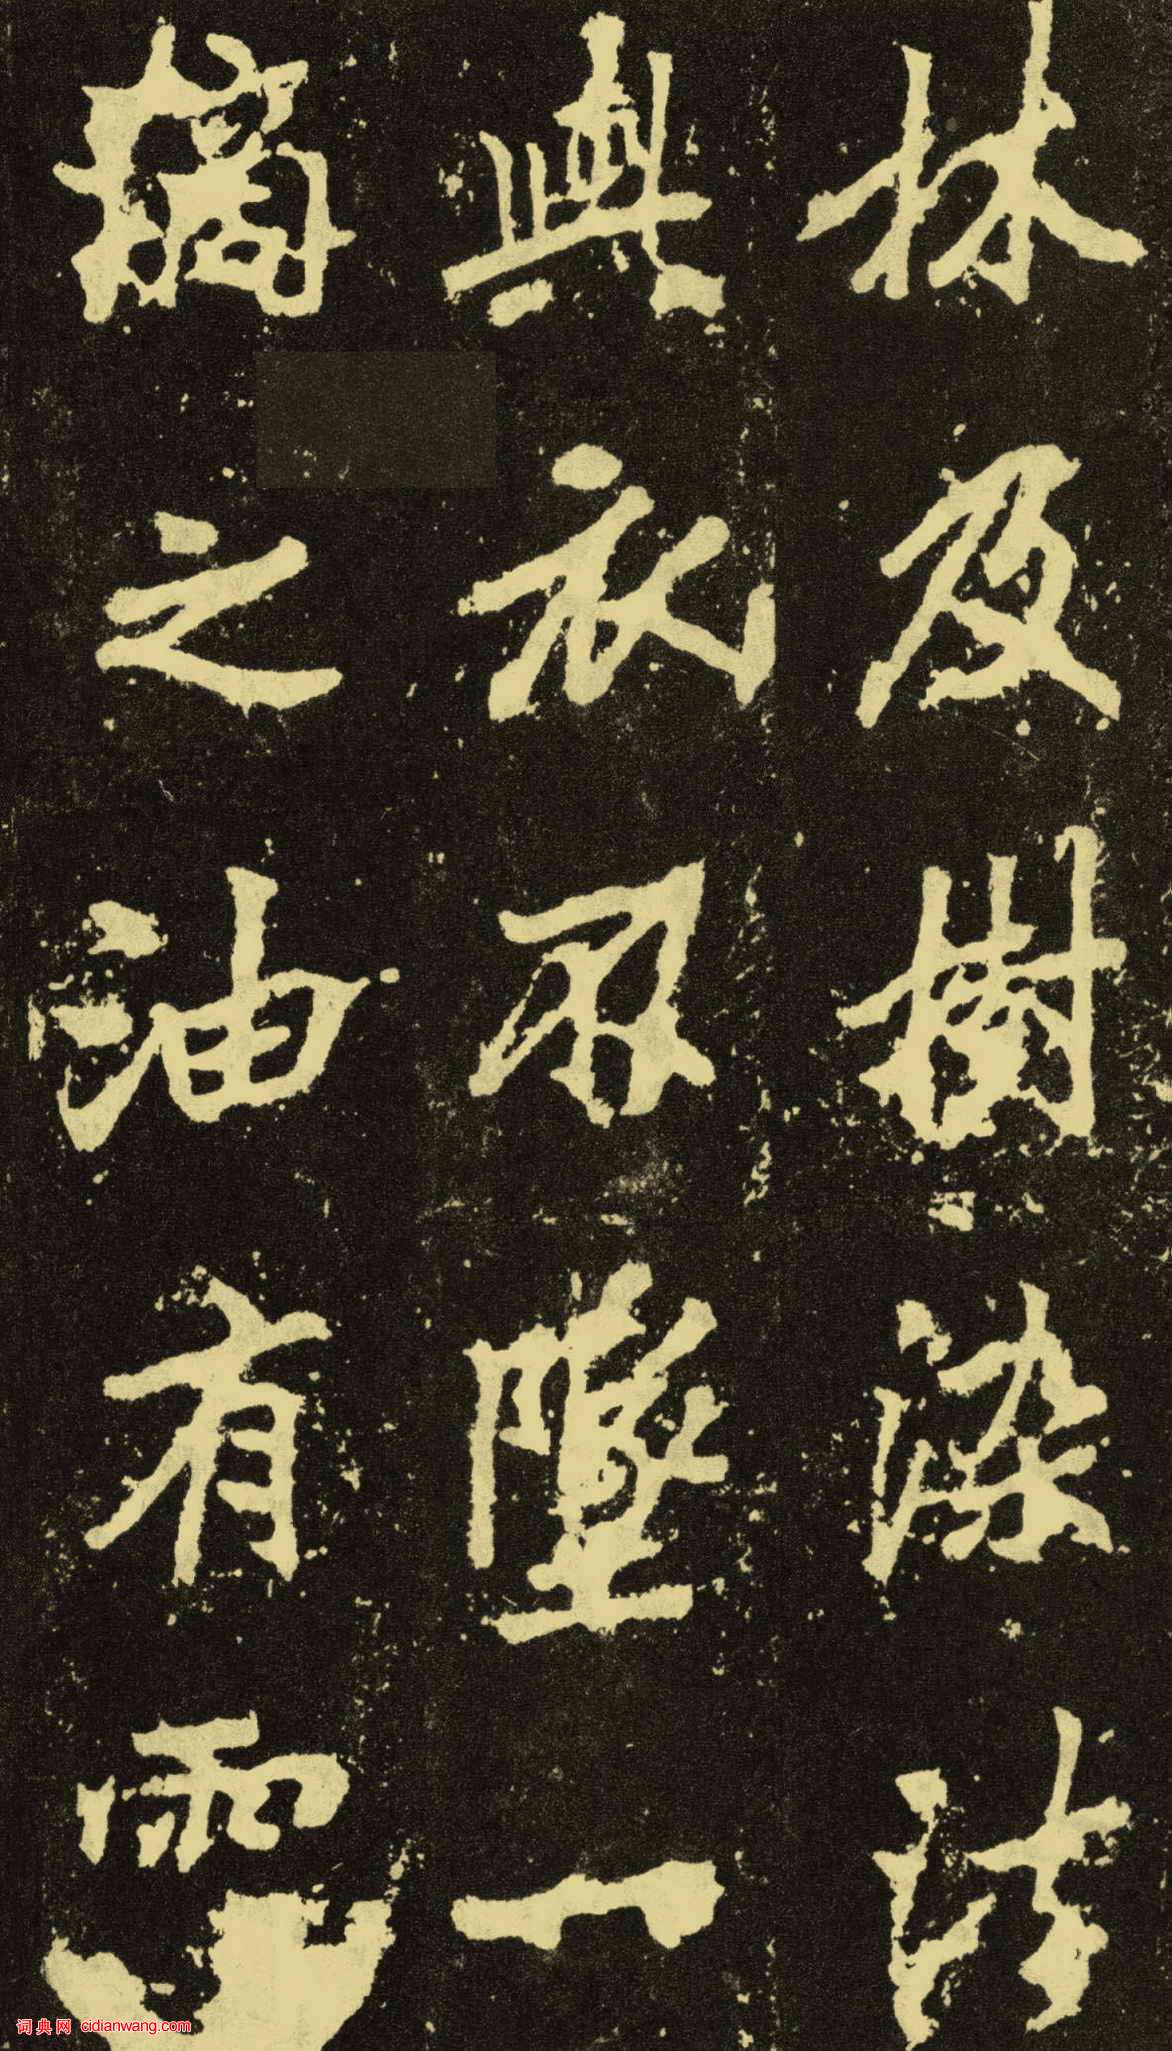 林及樹染法
與衣不墜一
滴之油有
词典网 cidianwang.com